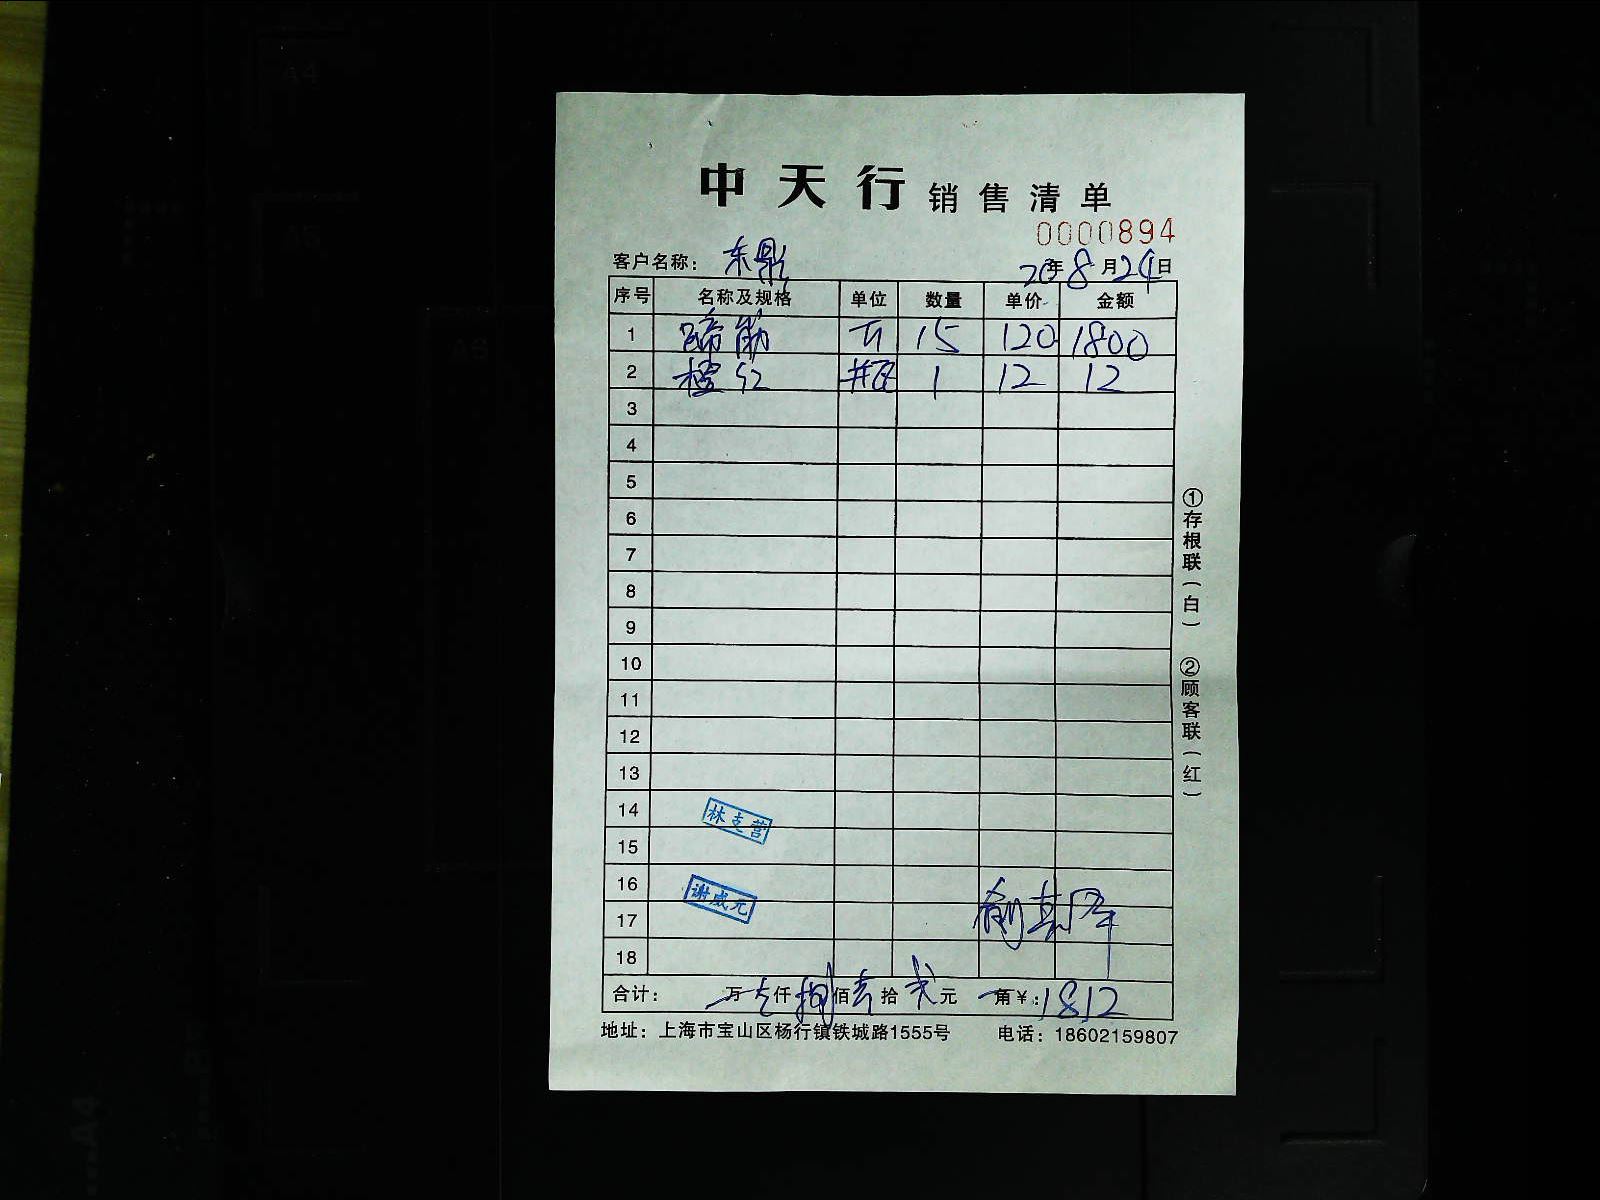 中天行 销售清单
0000894
客户名称： 东鼎 20年8月24日
序号 名称及规格 单位 数量 单价 金额
1 蹄筋 15 120 1800
2 橙红 1 12 12
3
4
5
6
7
8
9
10
11
12
13
14
林支营
15
16
谢威元
17
18
合计： 万 壹仟捌佰壹拾贰元 角￥:1812
地址：上海市宝山区杨行镇铁城路1555号 电话：18602159807
①存根联（白） ②顾客联（红）
A4
A5
A6
A4